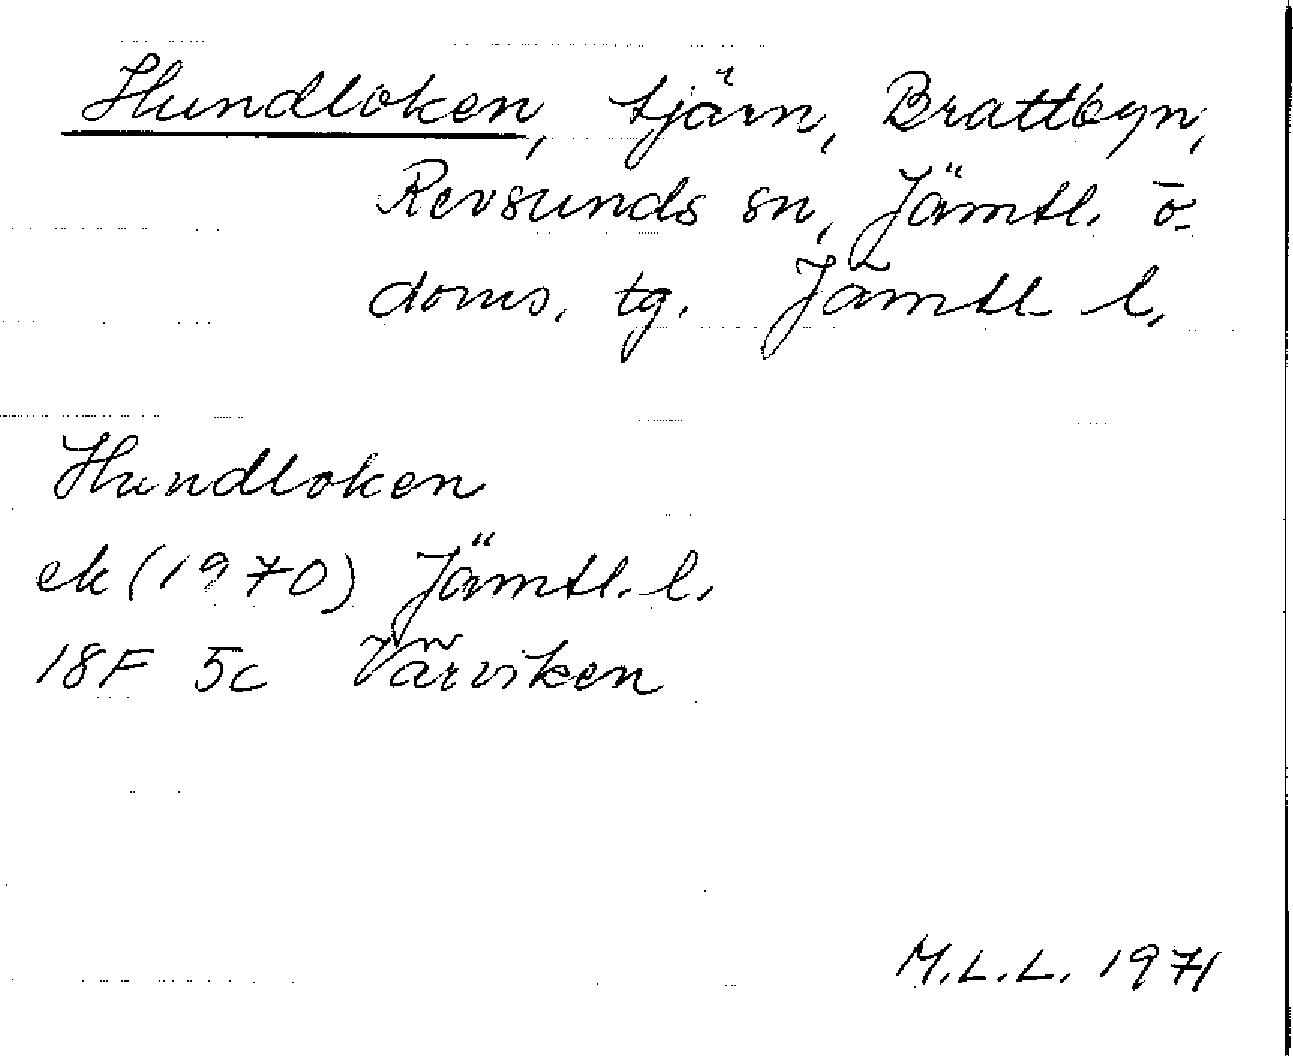 Hundloken, tjärn, Brattbyn,
Revsunds sn, Jämtl. ö.
doms. tg. Jämtl. l.
Hundloken
ek (1970) Jämtl. l.
18F 5c Vårviken
M.L.L. 1971